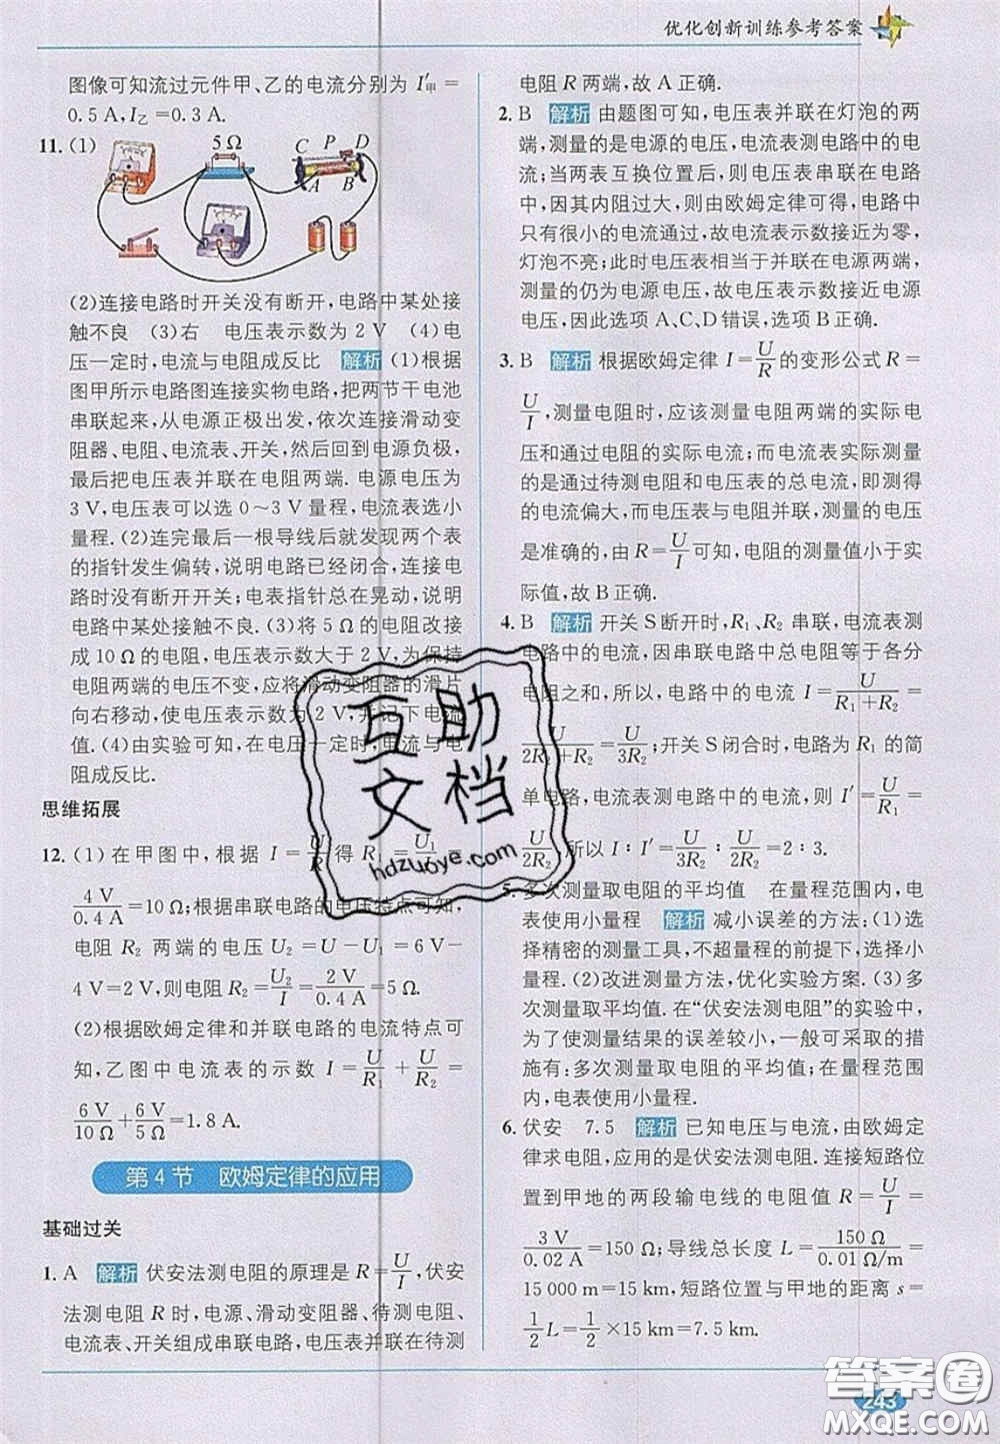 优化创新训练参考答案
图像可知流过元件甲、乙的电流分别为 I′甲 =
0.5 A,I乙=0.3 A.
11. (1)
5 Ω
C P D
A B
(2)连接电路时开关没有断开,电路中某处接
触不良 (3)右 电压表示数为 2 V (4)电
压一定时,电流与电阻成反比 解析 (1)根据
图甲所示电路图连接实物电路,把两节干电池
串联起来,从电源正极出发,依次连接滑动变
阻器、电阻、电流表、开关,然后回到电源负极,
最后把电压表并联在电阻两端. 电源电压为
3 V,电压表可以选 0～3 V 量程,电流表选小
量程. (2)连完最后一根导线后就发现两个表
的指针发生偏转,说明电路已经闭合,连接电
路时没有断开开关;电表指针总在晃动,说明
电路中某处接触不良. (3)将 5 Ω 的电阻改接
成 10 Ω 的电阻,电压表示数大于 2 V,为保持
电阻两端的电压不变,应将滑动变阻器的滑片
向右移动,使电压表示数为 2 V,并记下电流
值. (4)由实验可知,在电压一定时,电流与电
阻成反比.
思维拓展
12. (1) 在甲图中,根据 I = U/R 得 R₁ = U₁/I =
4 V/0.4 A=10 Ω;根据串联电路的电压特点可知,
电阻 R₂ 两端的电压 U₂ = U − U₁ = 6 V −
4 V=2 V,则电阻 R₂=U₂/I=2 V/0.4 A=5 Ω.
(2)根据欧姆定律和并联电路的电流特点可
知,乙图中电流表的示数 I = U/R₁ + U/R₂ =
6 V/10 Ω+6 V/5 Ω=1.8 A.
第 4 节 欧姆定律的应用
基础过关
1. A 解析 伏安法测电阻的原理是 R=U/I,伏安
法测电阻 R 时,电源、滑动变阻器、待测电阻、
电流表、开关组成串联电路,电压表并联在待测
电阻 R 两端,故 A 正确.
2. B 解析 由题图可知,电压表并联在灯泡的两
端,测量的是电源的电压,电流表测电路中的电
流;当两表互换位置后,则电压表串联在电路
中,因其内阻过大,则由欧姆定律可得,电路中
只有很小的电流通过,故电流表示数接近为零,
灯泡不亮;此时电压表相当于并在电源两端,
测量的仍为电源电压,故电压表示数接近电源
电压,因此选项 A、C、D 错误,选项 B 正确.
3. B 解析 根据欧姆定律 I=U/R的变形公式 R=
U/I,测量电阻时,应该测量电阻两端的实际电
压和通过电阻的实际电流;而电流表实际测量
的是通过待测电阻和电压表的总电流,即测得
的电流偏大,而电压表与电阻并联,测量的电压
是准确的,由 R=U/I可知,电阻的测量值小于实
际值,故 B 正确.
4. B 解析 开关 S 断开时,R₁、R₂ 串联,电流表测
电路中的电流,因串联电路中总电阻等于各分
电阻之和,所以,电路中的电流 I = U/(R₁+R₂) =
U/(2R₂+R₂)=U/3R₂;开关 S 闭合时,电路为 R₁ 的简
单电路,电流表测电路中的电流,则 I′=U/R₁=
U/2R₂,所以 I∶I′=U/3R₂∶U/2R₂=2∶3.
5. 多次测量取电阻的平均值 在量程范围内,电
表使用小量程 解析 减小误差的方法:(1)选
择精密的测量工具,不超量程的前提下,选择小
量程. (2)改进测量方法,优化实验方案. (3)多
次测量取平均值. 在“伏安法测电阻”的实验中,
为了使测量结果的误差较小,一般可采取的措
施有:多次测量取电阻的平均值;在量程范围
内,电表使用小量程.
6. 伏安 7.5 解析 已知电压与电流,由欧姆定
律求电阻,应用的是伏安法测电阻. 连接短路位
置到甲地的两段输电线的电阻值 R = U/I =
3 V/0.02 A=150 Ω;导线总长度 L=150 Ω/0.01 Ω/m=
15 000 m=15 km,短路位置与甲地的距离 s=
1/2 L=1/2×15 km=7.5 km.
互助
文档
hdzuoye.com
243
答案圈
MXQE.COM